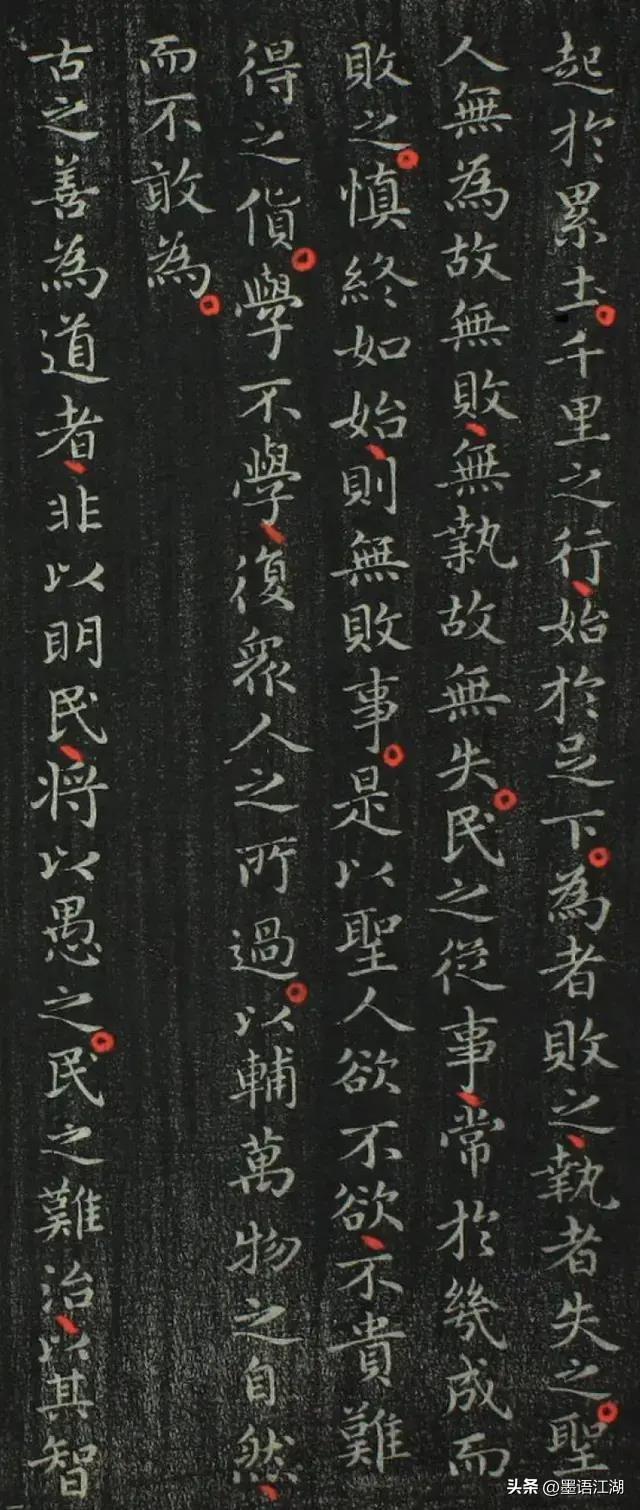 起於累土。千里之行、始於足下。為者敗之、執者失之。聖
人無為故無敗、無執故無失。民之從事、常於幾成而
敗之。慎終如始、則無敗事。是以聖人欲不欲、不貴難
得之貨。學不學、復眾人之所過。以輔萬物之自然、
而不敢為。
古之善為道者、非以明民、将以愚之。民之難治、以其智
头条 @墨语江湖